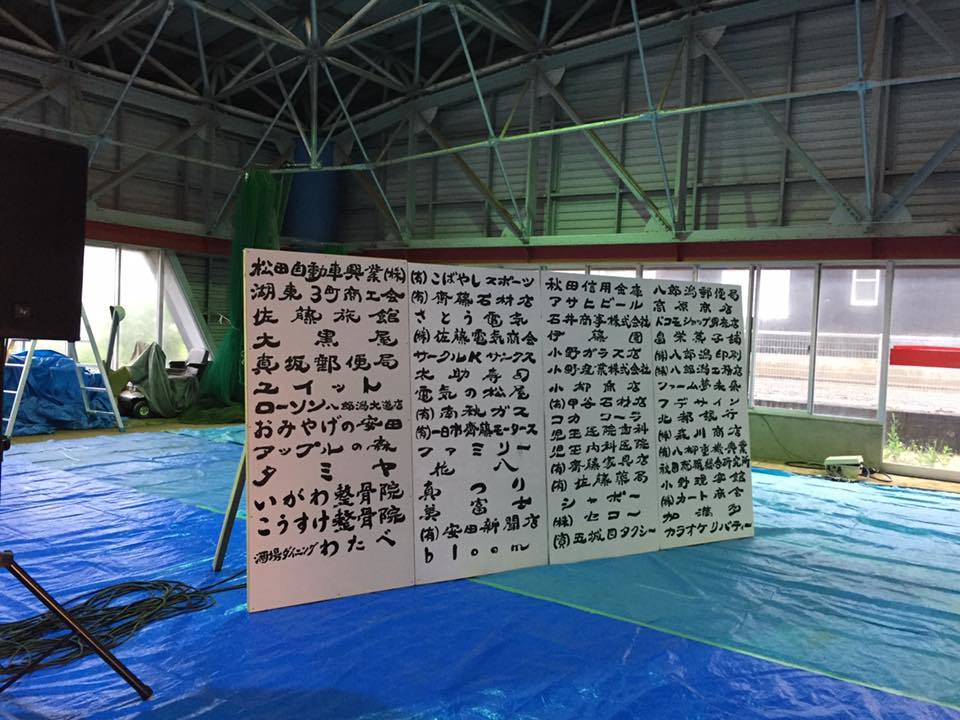 松田自動車興業(株)
湖東3町商工会
佐藤旅館
大黒屋
真坂郵便局
ユイット
ローソン八郎潟大道店
おみやげの安田
アップルの森
タミヤ
いがわ整骨院
こうすけ整骨院
酒場ダイニングわたべ
(有)こばやしスポーツ
(有)齋藤石材店
さとう電気
(株)佐藤電気商会
サークルKサンクス
太助寿司
電気の松屋
(有)南秋ガス
(有)一日市齊藤モータース
ファミリー
花八
真つり
萬富士
(有)安田新聞店
bloom
秋田信用金庫
アサヒビール
石井商事株式会社
伊藤園
小野ガラス店
小野産業株式会社
小柳魚店
(有)甲谷石材店
コカコーラ
児玉医院歯科
児玉内科医院
(有)齊藤家具店
(有)佐藤薬局
シャポー
(株)セコー
(資)五城目タクシー
八郎潟郵便局
高原商店
ドコモショップ男鹿店
畠栄菓子舗
(株)八郎潟印刷
(株)八郎潟工務店
ファーム夢未来
フデザイン
北都銀行
(株)森川商店
(株)八柳重機興業
小野理容館
(株)カート商会
加満多
カラオケリバティー